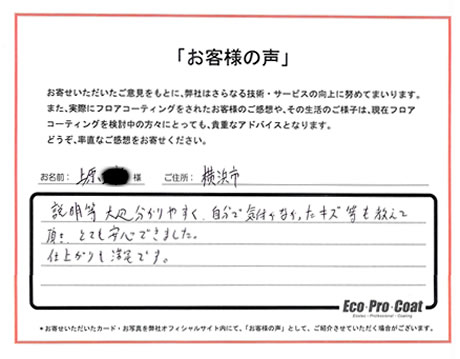 「お客様の声」
お寄せいただいたご意見をもとに、弊社はさらなる技術・サービスの向上に努めてまいります。
また、実際にフロアコーティングをされたお客様のご感想や、その生活のご様子は、現在フロア
コーティングを検討中の方々にとっても、貴重なアドバイスとなります。
どうぞ、率直なご感想をお寄せください。
お名前： 上原 様 ご住所： 横浜市
説明等 大変分かりやすく、自分で気付かなかったキズ等も教えて
頂き、とても安心できました。
仕上がりも満足です。
Eco・Pro・Coat
*お寄せいただいたカード・お写真を弊社オフィシャルサイト内にて、「お客様の声」として、ご紹介させていただく場合がございます。